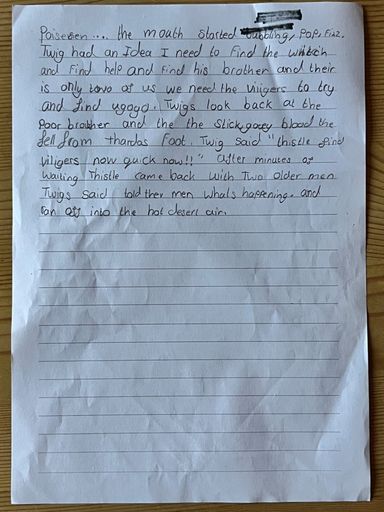 Poiseeen... the mouth started bubbling, Pop, Fizz.
Twig had an Idea I need to find the whitch
and find help and find his brother and their
is only towo of us we need the viligers to try
and find yogog. Twigs look back at the
Poor brother and the the stick gooey blood the
fell from thardas foot. Twig said "thistle find
viligers now quick now!!" after minutes of
waiting Thistle came back with Two older men
Twigs said told they men whats happening. and
ran off into the hot desert air.